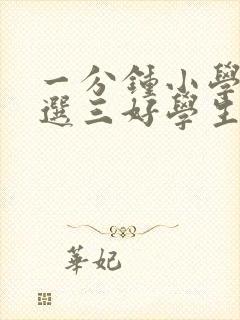 一分鍾小學
選三好學生
華妃